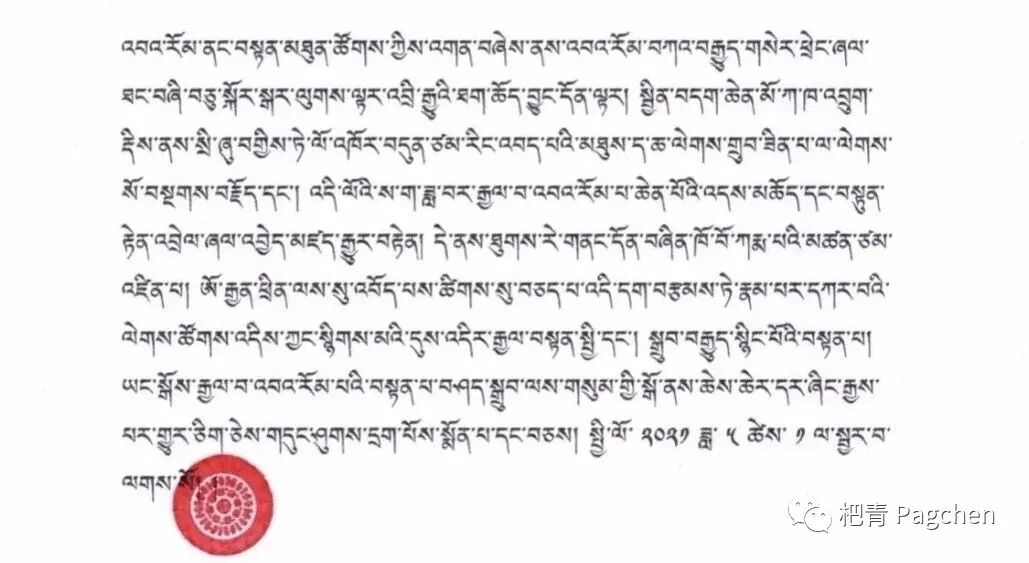 འབའ་རོམ་ནང་བསྟན་མཐུན་ཚོགས་ཀྱིས་འགན་བཞེས་ནས་འབའ་རོམ་བཀའ་བརྒྱུད་གསེར་ཕྲེང་ཞལ་
ཐང་བཞི་བཅུ་སྐོར་སྒར་ལུགས་ལྟར་འབྲི་རྒྱུའི་ཐག་ཆོད་བྱུང་དོན་ལྟར། སྦྱིན་བདག་ཆེན་མོ་ཀ་ཁ་འབྲུག་
རྡིས་ནས་སྲི་ཞུ་བགྱིས་ཏེ་ལོ་འཁོར་བདུན་ཙམ་རིང་འབད་པའི་མཐུས་ད་ཆ་ལེགས་གྲུབ་ཟིན་པ་ལ་ལེགས་
སོ་བསྔགས་བརྗོད་དང་། འདི་ལོའི་ས་ག་ཟླ་བར་རྒྱལ་བ་འབའ་རོམ་པ་ཆེན་པོའི་འདས་མཆོད་དང་བསྟུན་
རྟེན་འབྲེལ་ཞལ་འབྱེད་མཛད་རྒྱུར་བརྟེན། དེ་ནས་ཐུགས་རེ་གནང་དོན་བཞིན་ཁོ་བོ་ཀརྨ་པའི་མཚན་ཙམ་
འཛིན་པ། ཨོ་རྒྱན་ཕྲིན་ལས་སུ་འབོད་པས་ཚིགས་སུ་བཅད་པ་འདི་དག་བརྩམས་ཏེ་རྣམ་པར་དཀར་བའི་
ལེགས་ཚོགས་འདིས་ཀྱང་སྙིགས་མའི་དུས་འདིར་རྒྱལ་བསྟན་སྤྱི་དང་། སྒྲུབ་བརྒྱུད་སྙིང་པོའི་བསྟན་པ།
ཡང་སྒོས་རྒྱལ་བ་འབའ་རོམ་པའི་བསྟན་པ་བཤད་སྒྲུབ་ལས་གསུམ་གྱི་སྒོ་ནས་ཆེས་ཆེར་དར་ཞིང་རྒྱས་
པར་གྱུར་ཅིག་ཅེས་གདུང་ཤུགས་དྲག་པོས་སྨོན་པ་དང་བཅས། སྤྱི་ལོ་ ༢༠༢༡ ཟླ་ ༥ ཚེས་ ༡ ལ་སྦྱར་བ་
ལགས་སོ། །
杷青 Pagchen